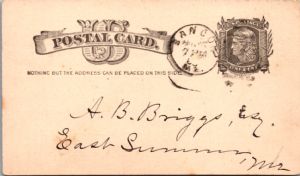 POSTAL CARD.
NOTHING BUT THE ADDRESS CAN BE PLACED ON THIS SIDE.
BANGOR
ME.
A. B. Briggs, Esq.
East Sumner,
Me